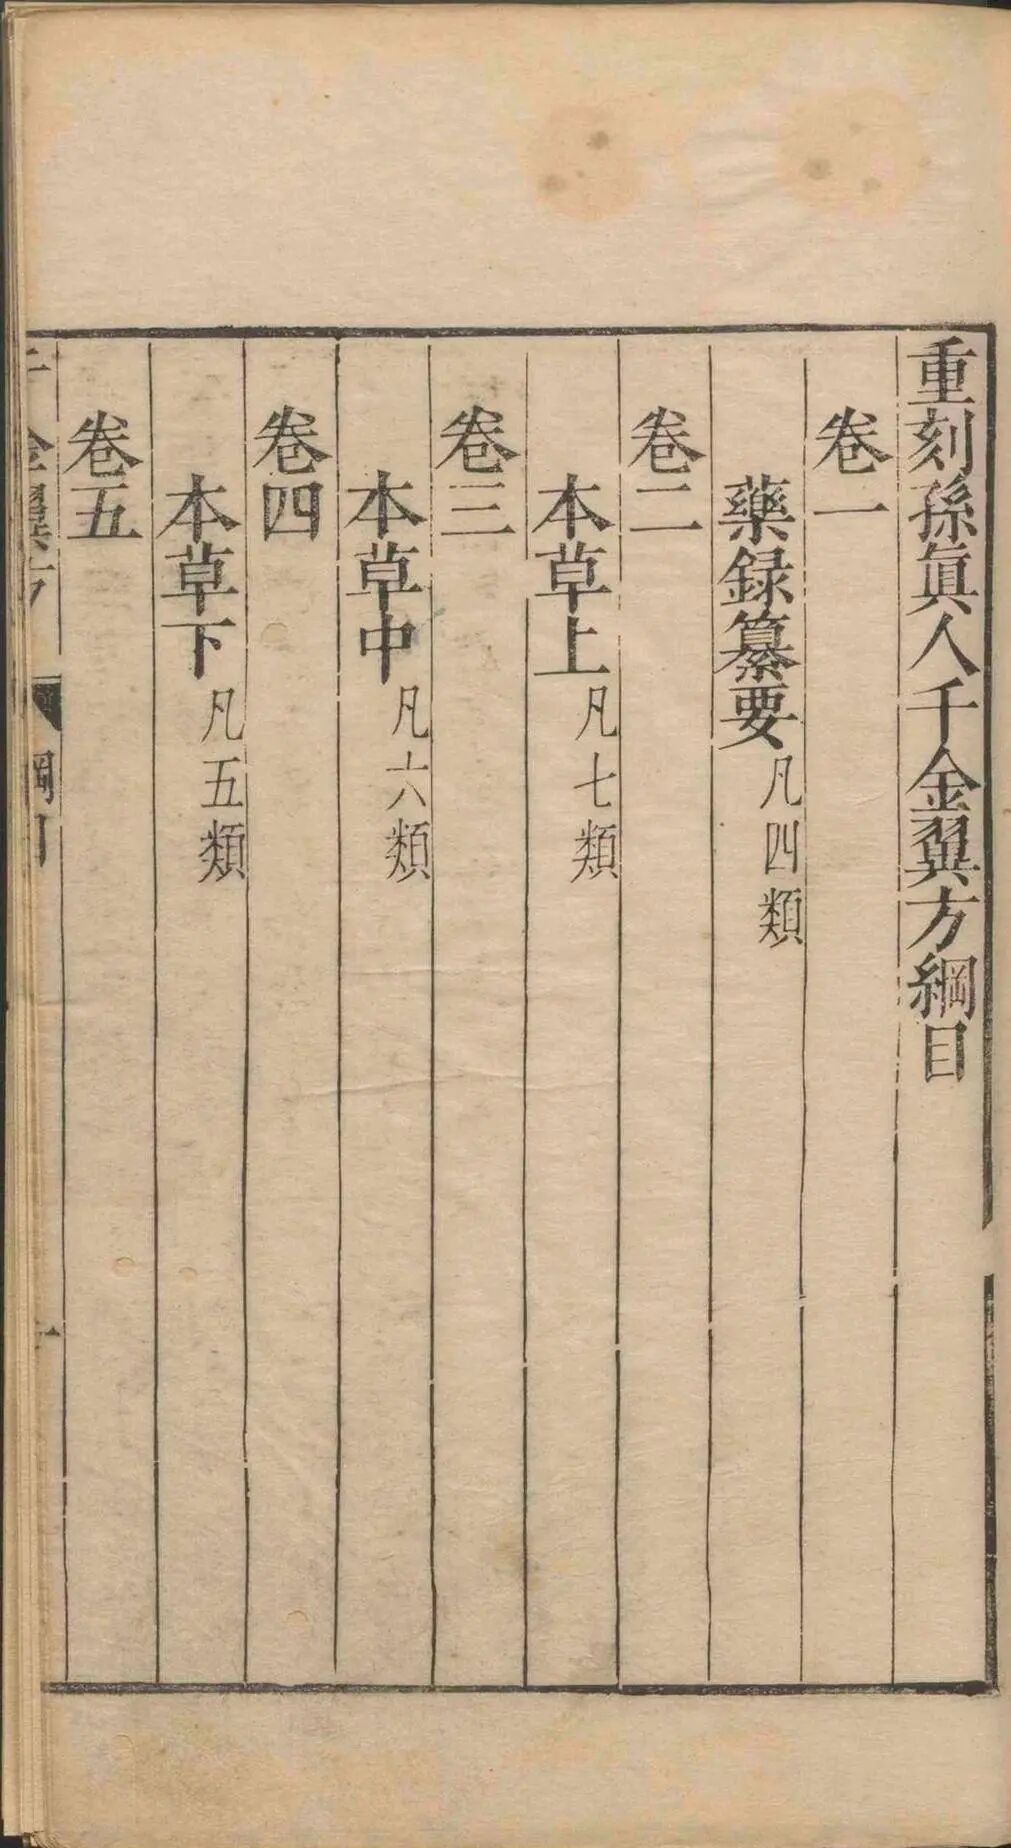 重刻孫眞人千金翼方綱目
卷一
藥録纂要凡四類
卷二
本草上凡七類
卷三
本草中凡六類
卷四
本草下凡五類
卷五
千金翼方 綱目 一